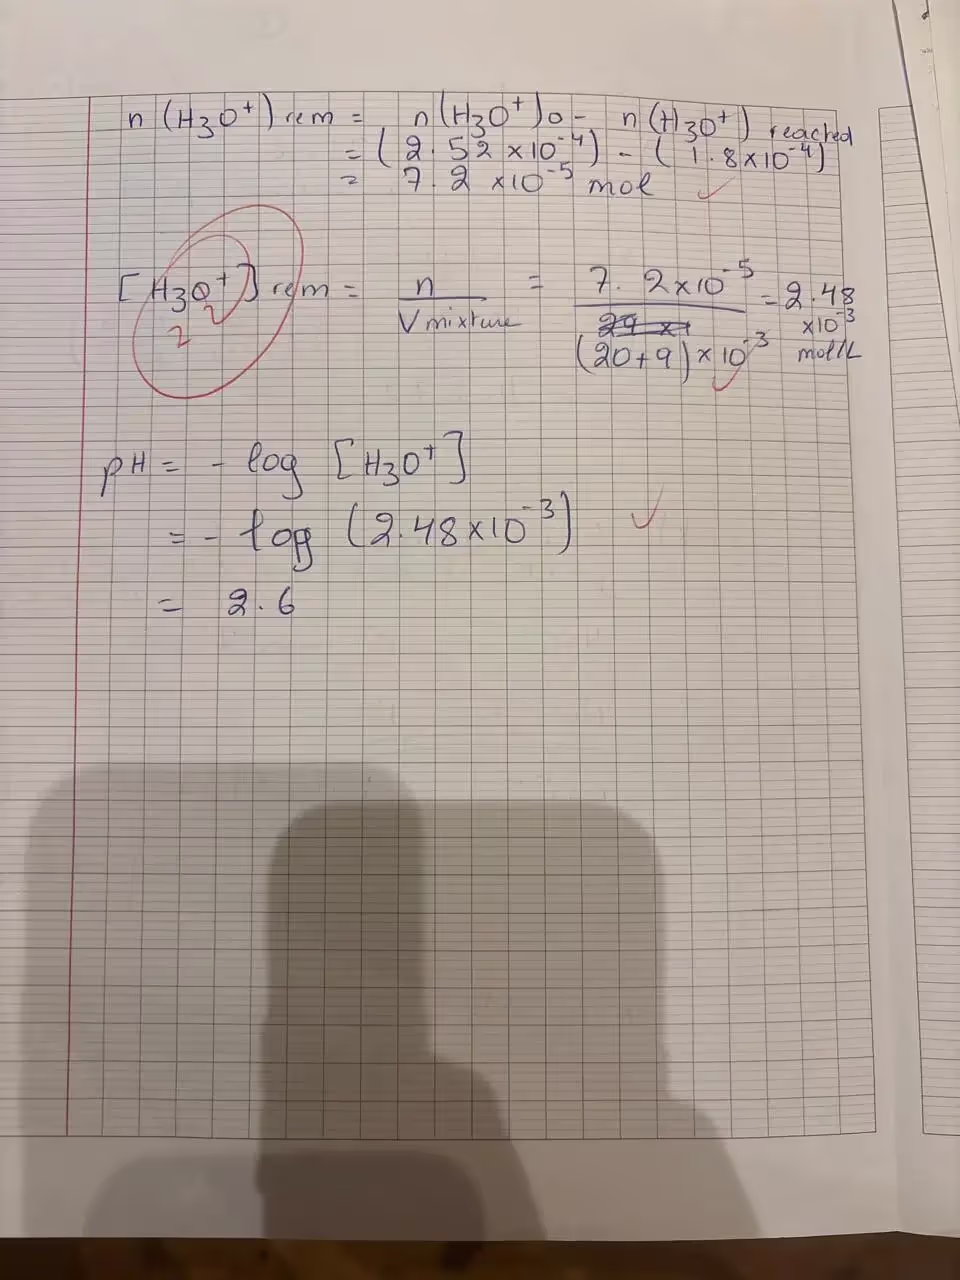 n (H3O+) rem = n(H3O+)o - n(H3O+) reacted
= (2.52 ×10⁻⁴) - (1.8×10⁻⁴)
= 7.2 ×10⁻⁵ mol ✓
[H3O+] rem = n / V mixture = 7.2×10⁻⁵ / (20+9)×10⁻³ = 2.48 ×10⁻³ mol/L ✓
2 2
pH = - log [H3O+]
= - log (2.48×10⁻³) ✓
= 2.6